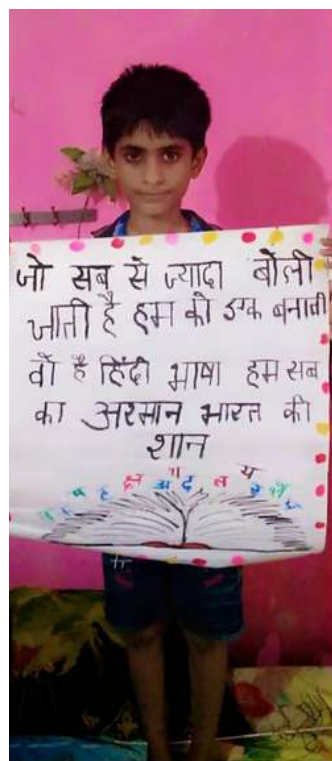 जो सब से ज्यादा बोली
जाती है हम को इक बनाती
वो है हिंदी भाषा हम सब
का अरमान भारत की
शान
ह क्ष अ द ब य